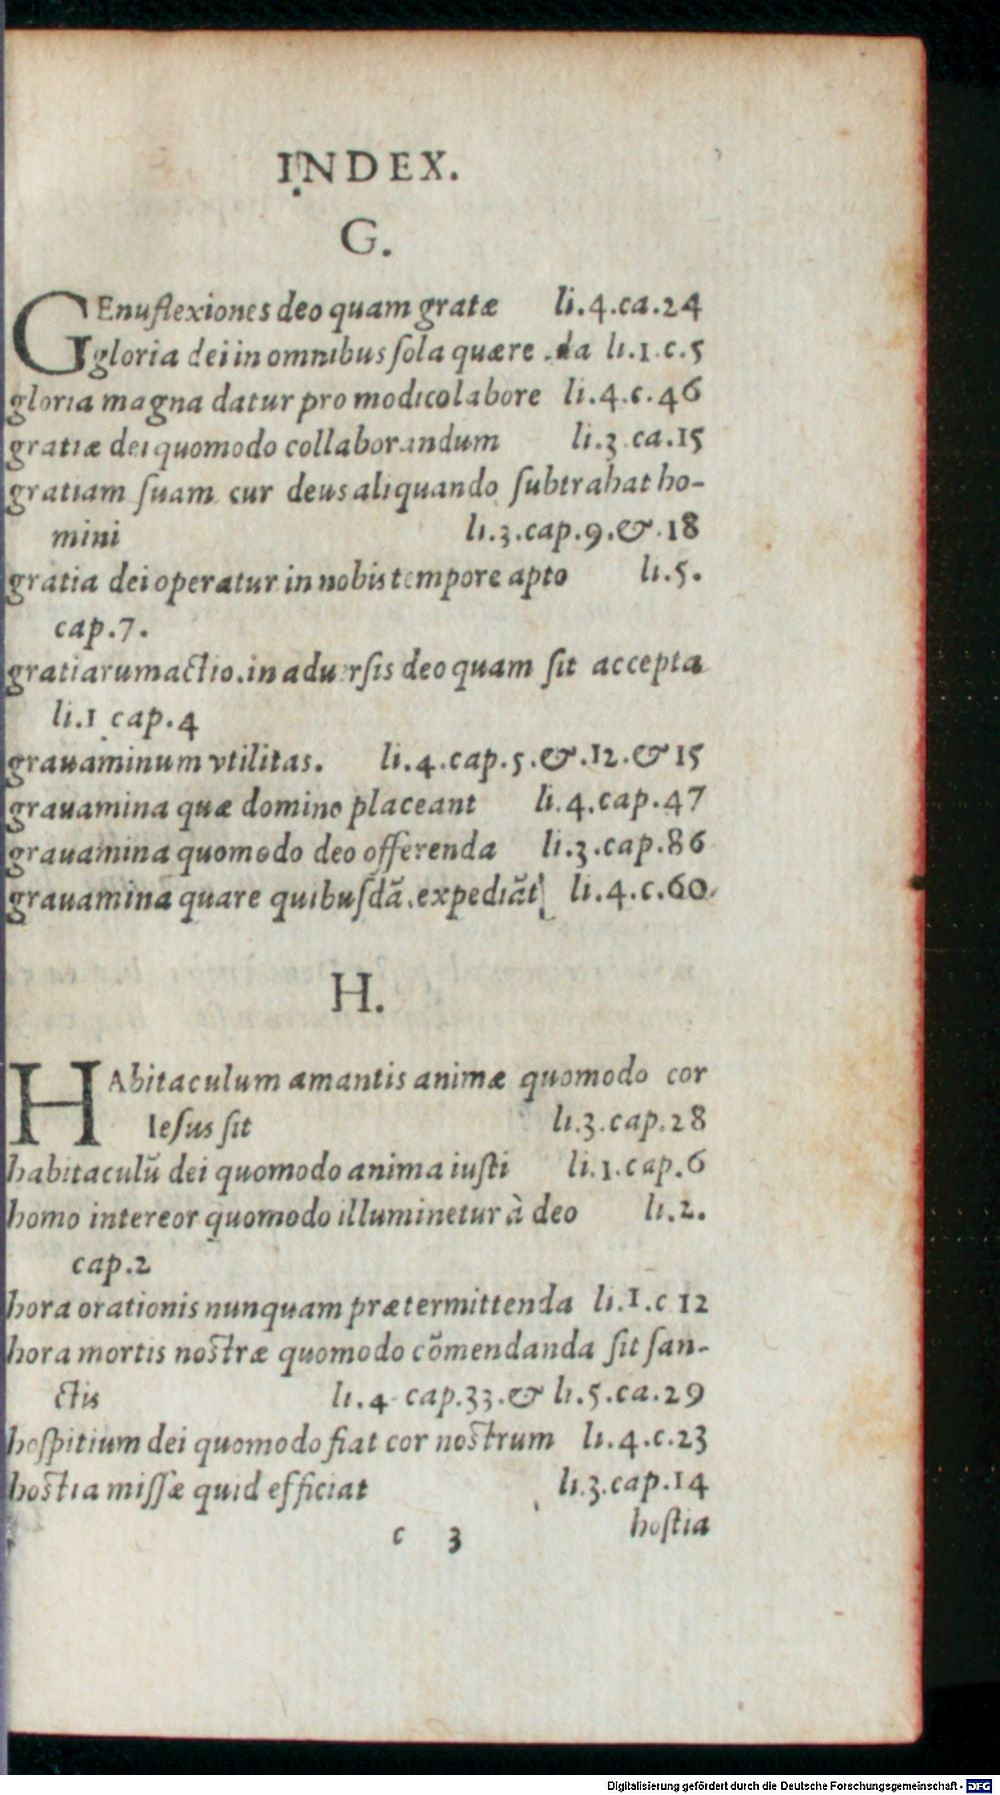 INDEX.
G.
GEnuflexiones deo quam gratæ li.4.ca.24
gloria dei in omnibus ſola quære.da li.1.c.5
gloria magna datur pro modico labore li.4.c.46
gratiæ dei quomodo collaborandum li.3 ca.15
gratiam ſuam cur deus aliquando ſubtrahat ho-
mini li.3.cap.9.& 18
gratia dei operatur in nobis tempore apto li.5.
cap.7.
gratiarum actio.in aduerſis deo quam ſit accepta
li.1 cap.4
grauaminum vtilitas. li.4.cap.5.&.12.& 15
grauamina quæ domino placeant li.4.cap.47
grauamina quomodo deo offerenda li.3.cap.86
grauamina quare quibuſdã.expediãt li.4.c.60
H.
HAbitaculum amantis animæ quomodo cor
Ieſus ſit li.3.cap.28
habitaculũ dei quomodo anima iuſti li.1.cap.6
homo intereor quomodo illuminetur à deo li.2.
cap.2
hora orationis nunquam prætermittenda li.1.c 12
hora mortis noſtræ quomodo cõmendanda ſit ſan-
ctis li.4 cap.33.& li.5.ca.29
hoſpitium dei quomodo fiat cor noſtrum li.4.c.23
hoſtia miſſæ quid efficiat li.3.cap.14
c 3 hoſtia
Digitalisierung gefördert durch die Deutsche Forschungsgemeinschaft - DFG